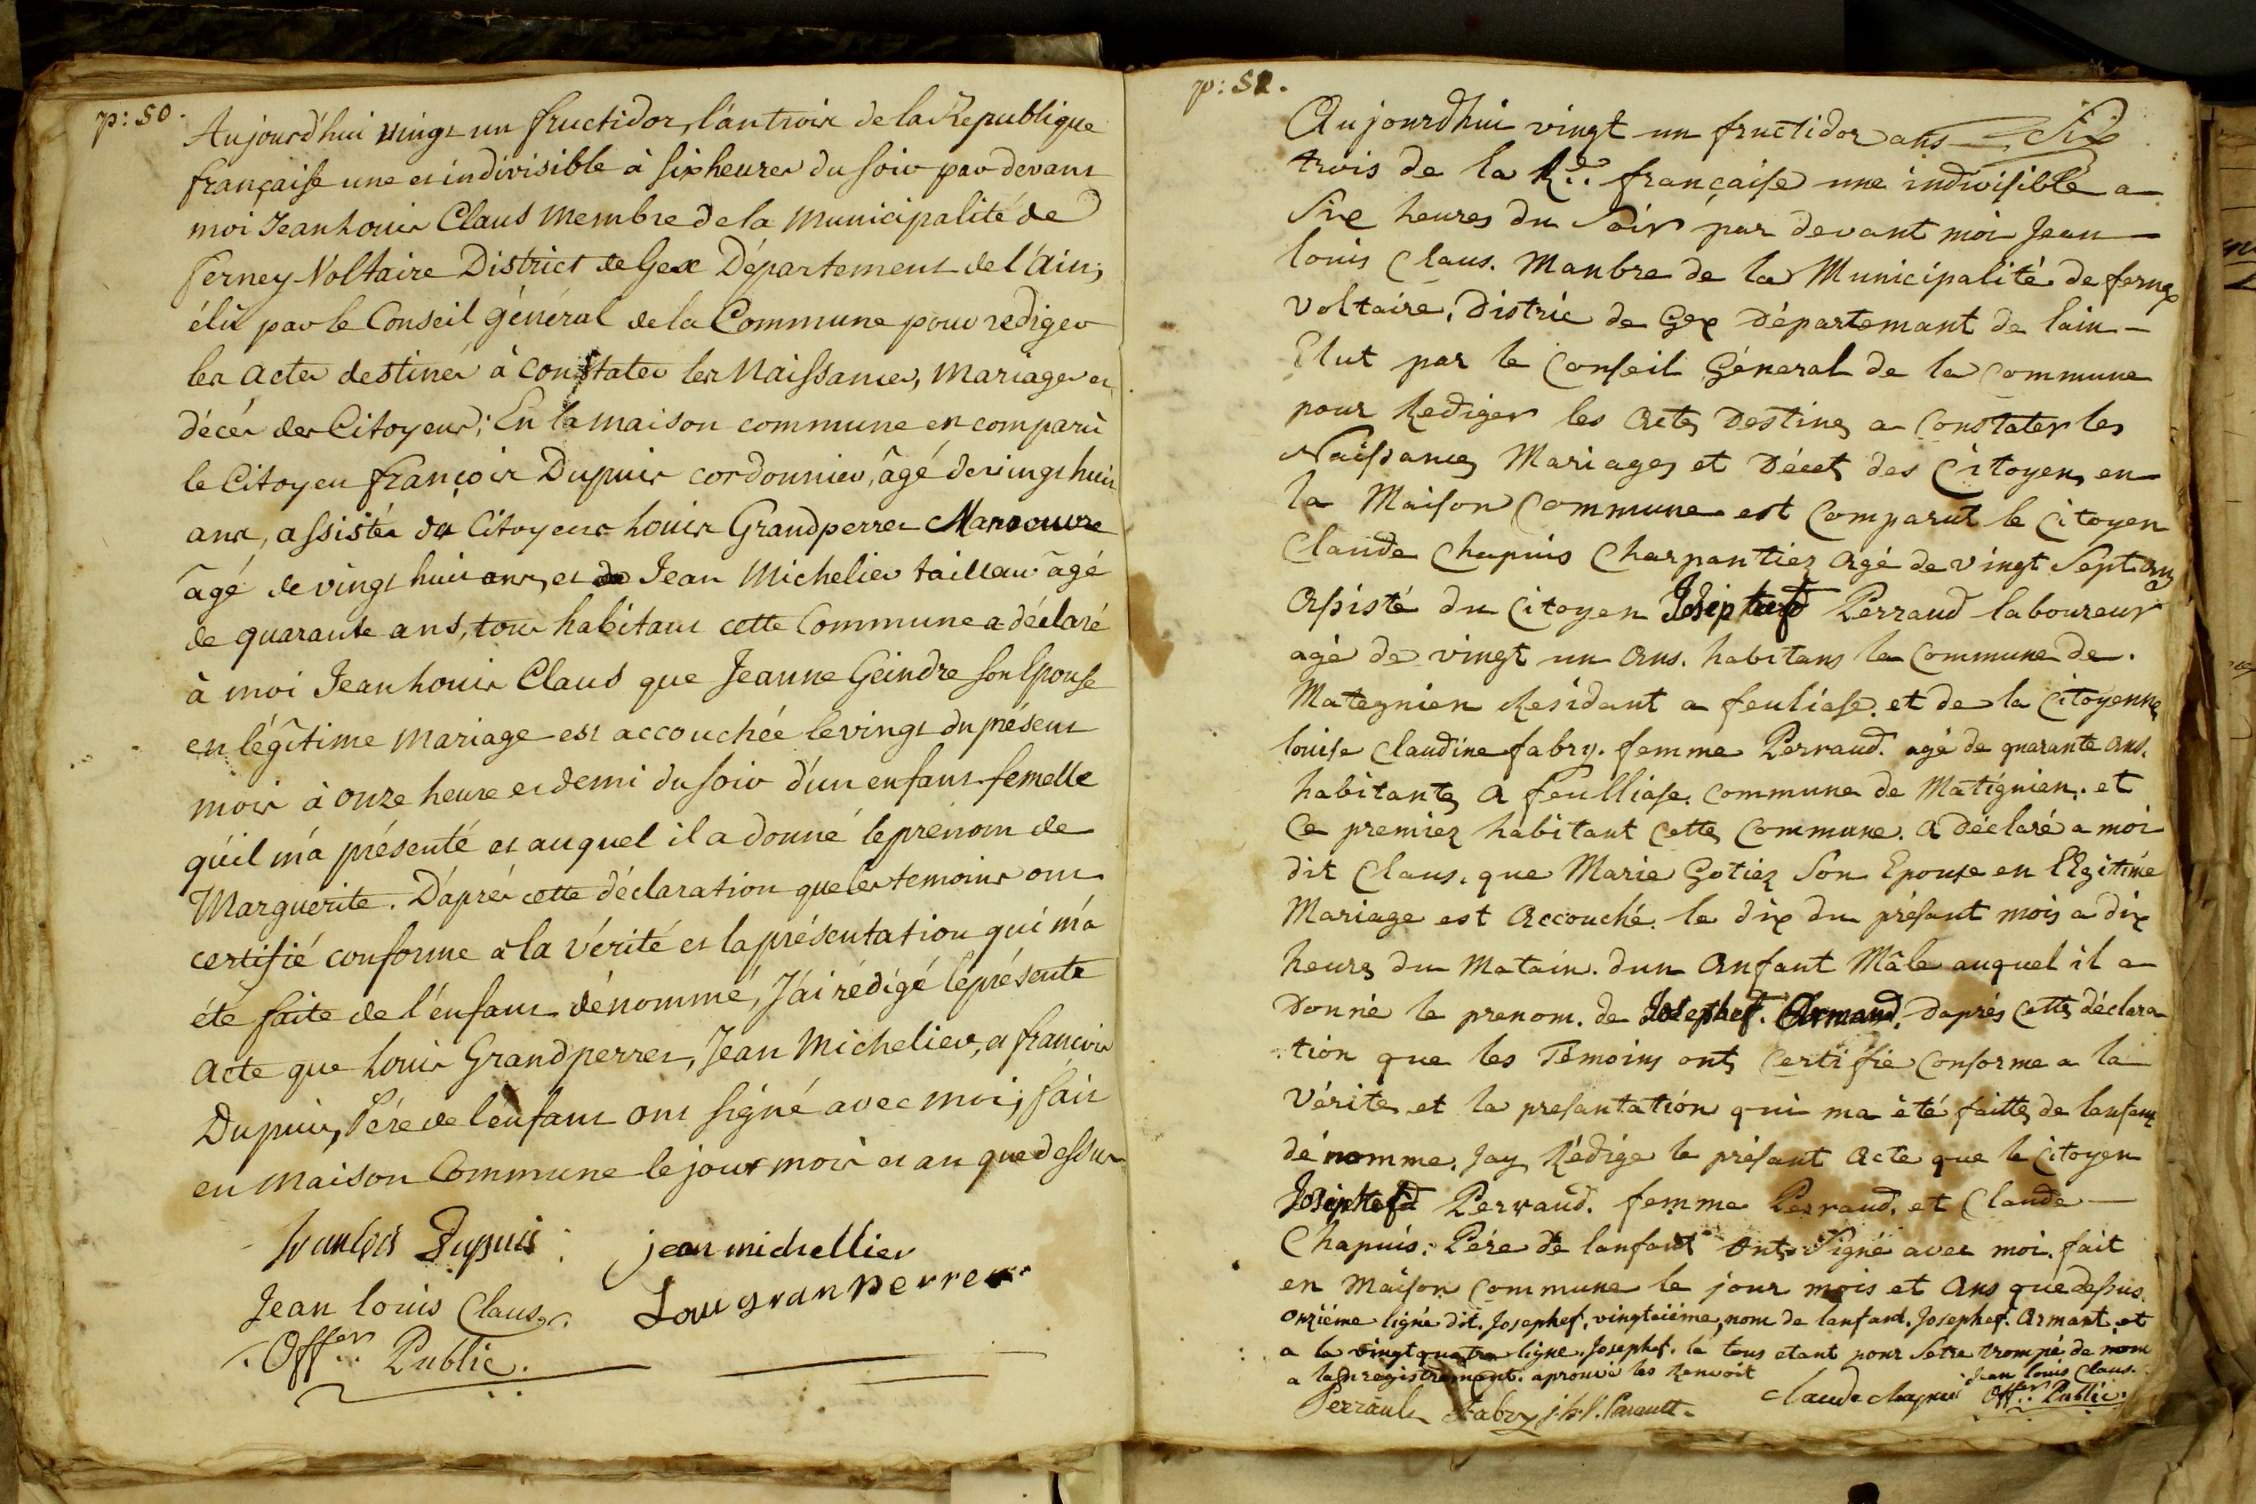 p: 50.
Aujourd'hui vingt un fructidor, l'an trois de la Republique
française une et indivisible à six heures du soir par devant
moi Jean Louis Claus Membre de la Municipalité de
Ferney-Voltaire District de Gex Département de l'Ain,
élu par le Conseil général de la Commune pour rediger
les actes destinés à constater les Naissances, Mariages et
décès des Citoyens; En la maison commune est comparû
le Citoyen François Dupuis cordonnier, âgé de vingt huit
ans, assistés du Citoyens Louis Grandperret
âgé de vingt huit ans, et Jean Michelier tailleur âgé
de quarante ans, tous habitant cette Commune a déclaré
à moi Jean Louis Claus que Jeanne Geindre son Epouse
en légitime mariage est accouchée le vingt du présent
mois à onze heure et demi du soir d'un enfant femelle
qu'il m'a présenté et auquel il a donné le prénom de
Marguerite. D'après cette déclaration que les temoins ont
certifié conforme à la vérité et la présentation qui m'a
éte faite de l'énfant dénommé, J'ai rédigé le présente
Acte que Louis Grandperret, Jean Michelier, et François
Dupuis, Pére de l'enfant ont signé avec moi; fait
en Maison Commune le jour mois et an que dessus
francois Dupuis
jean michellier
Jean louis Claus.
Lou granperret
Offer Public.
p: 51.
Aujourdhui vingt un fructidor ans Six
trois de la R.. française une indivisible a
Six heures du Soir par devant moi Jean
louis Claus. Manbre de la Municipalité de fernex
Voltaire. Distric de Gex Département de lain
Elut par le Conseil Géneral de la Commune
pour Rediger les Actes Destines a Constater les
Naissances Mariages et Décet des Citoyen en
la Maison Commune est Comparut le Citoyen
Claude Chapuis Charpantiez agé de vingt Sept ans
Assisté du Citoyen Perraud laboureur
agé de vingt un ans. habitans la Commune de.
Mategnien Residant a feuliase. et de la Citoyenne
louise Claudine fabry. femme Perraud. agé de quarante ans.
habitante a feulliase. Commune de Matignien. et
Ce premiez habitant Cette Commune. a déclaré a moi
dit Claus. que Marie Gotiez Son Epouse en lEgitime
Mariage est Accouché. le dix du présant mois a dix
heures du Matain. dun Anfant Mâle auquel il a
Donné le prenom. de Josephef. Armand. Daprés Cette déclara
tion que les Témoins ont Certifié Conforme a la
Vérite et la presantation qui ma èté faitte de lanfant
dé nomme. Jay Rédige le présant Acte que le Citoyen
Perraud. femme Perraud. et Claude
Chapuis. Pére de lanfant Ont Signé avec moi. fait
en Maison Commune le jour mois et Ans que dessus.
onziéme ligne dit. Josephef. vingtiéme, nom de lanfant. Josephef. Armant. et
a la vingt quatre ligne. Josephef. le tous etant pour Setre trompé de nom
a lanregistremant. aprouvé les Renvoit
Jean louis Claus.
Perrault Fabry
Claude chapuis
Offer Public.